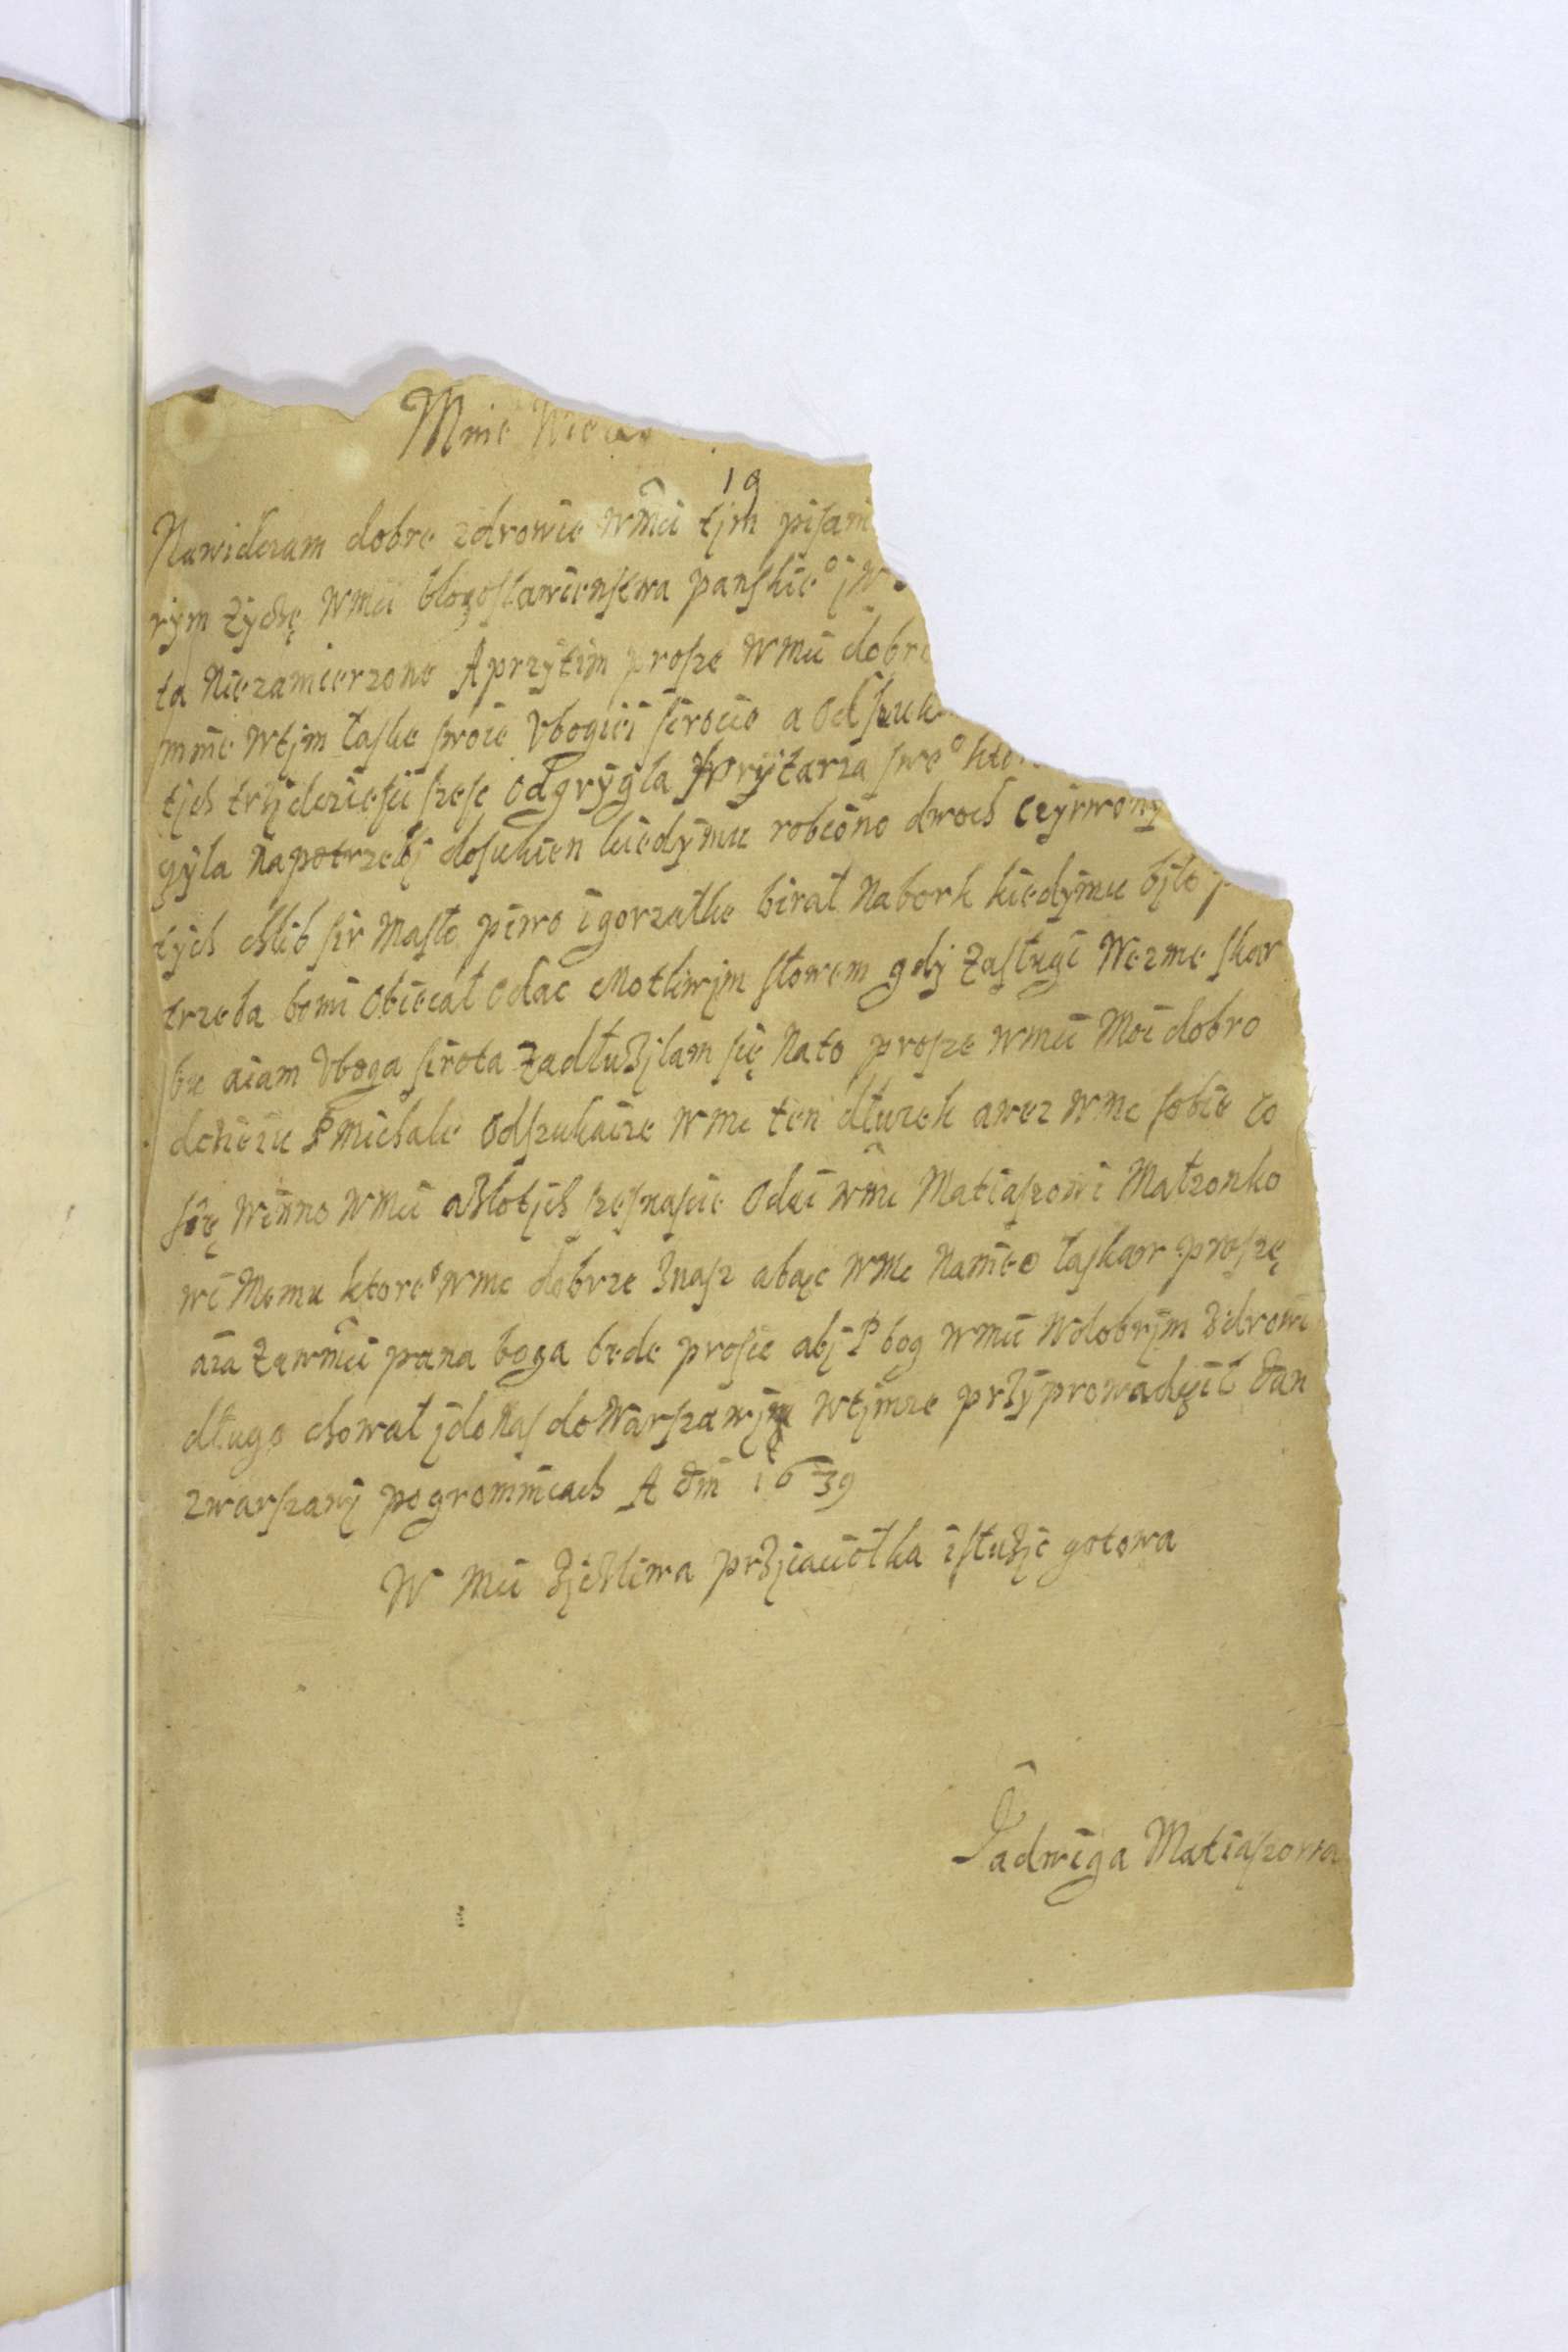 Mnie
19
Nawidzam dobre zdrowie wmci tjm pisani
rym życzę wmci błogosławienstwa panskie° j
ta Niezamierzone Aprzytim prosze wmci dobro
mnie wtjm łaske swoie Vbogiei sirocie a Odszuk
tjch trzjdziesci szesc Odgrygla pryztarza swe° kto
gyla Napotrzebj dosukien kiedymu robiono dwoch czyrwony
tych chlib sir Masło piwo igorzałke birał Nabork kiedymu bjło p
trzeba bomi Obiecał Odac cnotliwjm słowem gdj zasługi Wezme skar
bu aiam Vboga sirota zadłużjlam się Nato prosze wmci Moi dobro
dzieiu P michale Odszukaice wmc ten dłuzek awez wmc sobie co
się winno wmci azłotjch szesnascie Odai wmc Matiaszowi Małzonko
wi Memu ktore° wmc dobrze znasz abąc wmc Namie łaskaw proszę
aia zawmci pana boga bede prosic abj P bog wmci wdobrjm zdrowi
długo chował jdonas doWarszawj wtjmze przyprowadził dan
zwarszawj pogromnicach A dm 1639
W mci zjczliwa przjiaciołka isłużjc gotowa
Jadwiga Matiaszowa